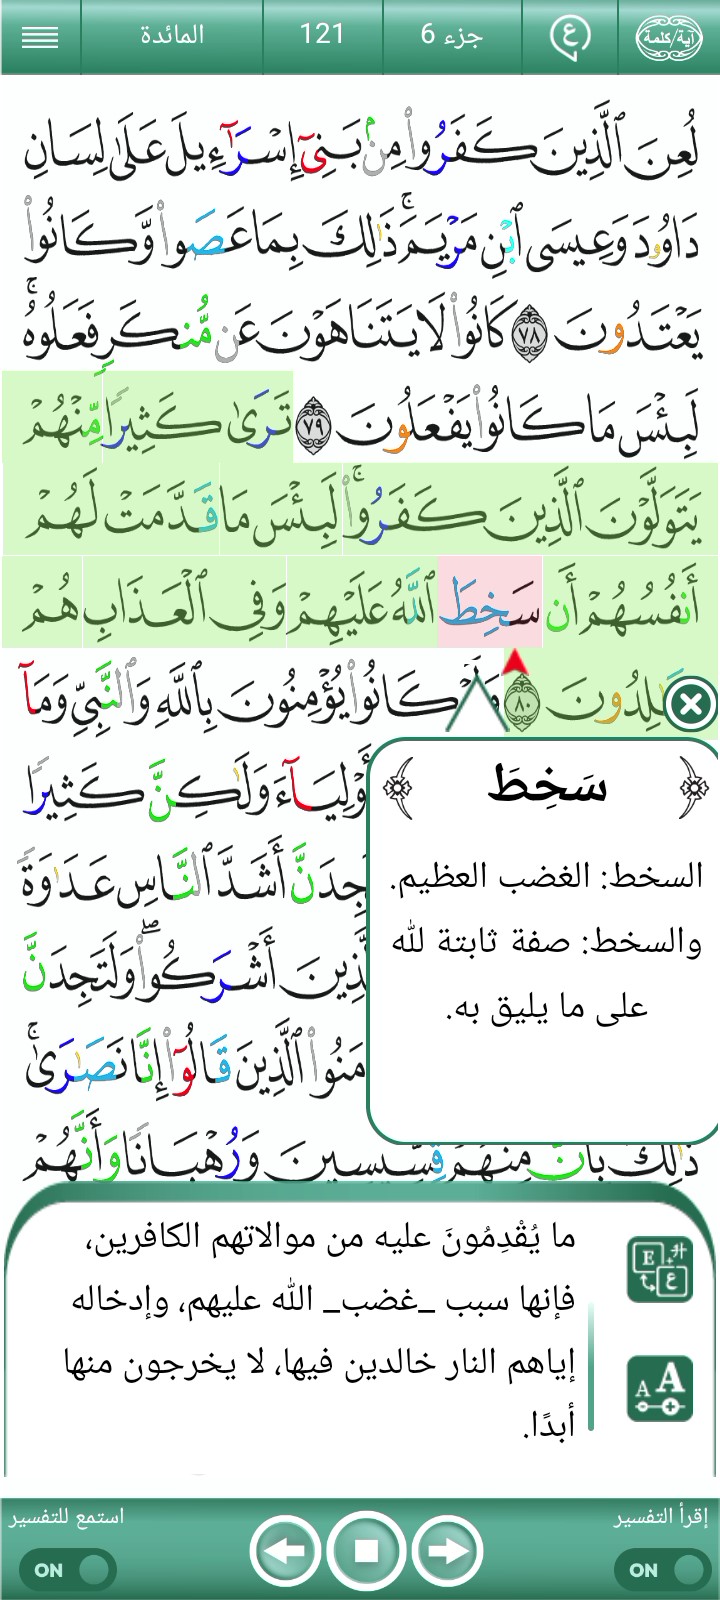 آية/كلمة
ع
جزء 6
121
المائدة
لُعِنَ ٱلَّذِينَ كَفَرُوا۟ مِنۢ بَنِىٓ إِسْرَٰٓءِيلَ عَلَىٰ لِسَانِ
دَاوُۥدَ وَعِيسَى ٱبْنِ مَرْيَمَ ۚ ذَٰلِكَ بِمَا عَصَوا۟ وَّكَانُوا۟
يَعْتَدُونَ ٧٨ كَانُوا۟ لَا يَتَنَاهَوْنَ عَن مُّنكَرٍ فَعَلُوهُ ۚ
لَبِئْسَ مَا كَانُوا۟ يَفْعَلُونَ ٧٩ تَرَىٰ كَثِيرًا مِّنْهُمْ
يَتَوَلَّوْنَ ٱلَّذِينَ كَفَرُوا۟ ۚ لَبِئْسَ مَا قَدَّمَتْ لَهُمْ
أَنفُسُهُمْ أَن سَخِطَ ٱللَّهُ عَلَيْهِمْ وَفِى ٱلْعَذَابِ هُمْ
٨٠ وَلَوْ كَانُوا۟ يُؤْمِنُونَ بِٱللَّهِ وَٱلنَّبِىِّ وَمَآ
أَوْلِيَآءَ وَلَٰكِنَّ كَثِيرًا
أَشَدَّ ٱلنَّاسِ عَدَٰوَةً
أَشْرَكُوا۟ ۖ وَلَتَجِدَنَّ
ٱلَّذِينَ قَالُوٓا۟ إِنَّا نَصَٰرَىٰ ۚ
ذَٰلِكَ بِأَنَّ مِنْهُمْ قِسِّيسِينَ وَرُهْبَانًا وَأَنَّهُمْ
سَخِطَ
السخط: الغضب العظيم.
والسخط: صفة ثابتة لله
على ما يليق به.
ما يُقْدِمُونَ عليه من موالاتهم الكافرين،
فإنها سبب _غضب_ الله عليهم، وإدخاله
إياهم النار خالدين فيها، لا يخرجون منها
أبدًا.
E ع
A A
إقرأ التفسير
ON
استمع للتفسير
ON